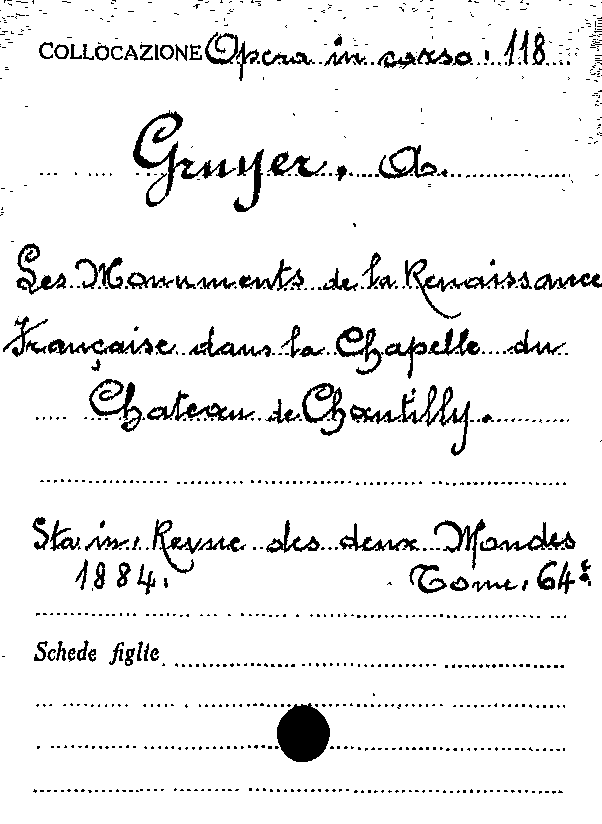 COLLOCAZIONE Opera in corso. 118
Gruyer, A.
Les Monuments de la Renaissance
Française dans la Chapelle du
Chateau de Chantilly.
Sta in. Revue des deux Mondes
1884. Tome. 64e.
Schede figlie